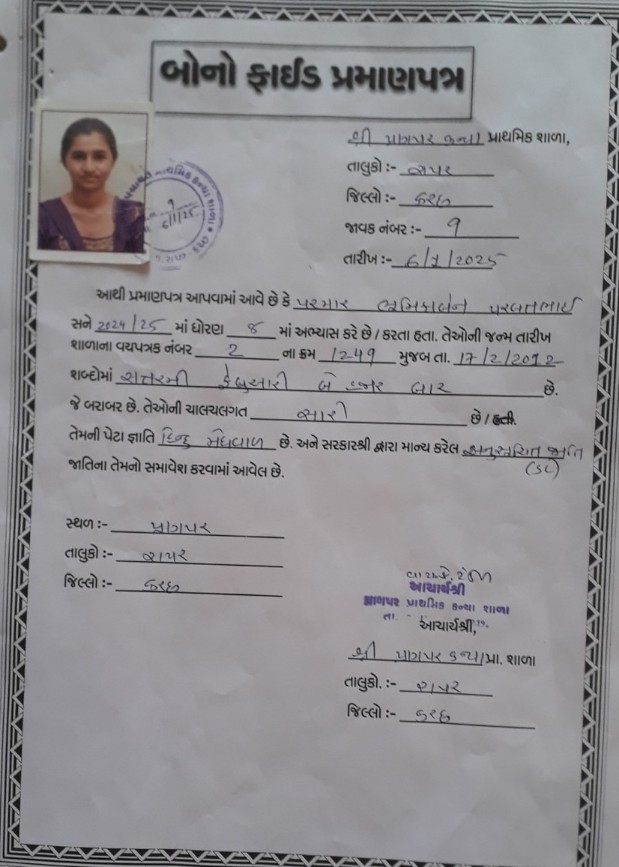 બોનો ફાઈડ પ્રમાણપત્ર
શ્રી પ્રાગપર કન્યા પ્રાથમિક શાળા,
તાલુકો :- રાપર
જિલ્લો :- કચ્છ
જાવક નંબર :- 9
તારીખ :- 6/1/2025
9
6/1/25
આથી પ્રમાણપત્ર આપવામાં આવે છે કે પરમાર ભૂમિકાબેન પરબતભાઈ
સને 2024/25 માં ધોરણ 8 માં અભ્યાસ કરે છે / કરતા હતા. તેઓની જન્મ તારીખ
શાળાના વયપત્રક નંબર 2 ના ક્રમ 1249 મુજબ તા. 17/2/2012
શબ્દોમાં સત્તરમી ફેબ્રુઆરી બે હજાર બાર છે.
જે બરાબર છે. તેઓની ચાલચલગત સારી છે / હતી.
તેમની પેટા જ્ઞાતિ હિન્દુ મેઘવાળ છે. અને સરકારશ્રી દ્વારા માન્ય કરેલ અનુસૂચિત જાતિ
(SC)
જાતિના તેમનો સમાવેશ કરવામાં આવેલ છે.
સ્થળ :- પ્રાગપર
તાલુકો :- રાપર
જિલ્લો :- કચ્છ
આચાર્યશ્રી
પ્રાગપર પ્રાથમિક કન્યા શાળા
તા.
આચાર્યશ્રી,
શ્રી પ્રાગપર કન્યા પ્રા. શાળા
તાલુકો. :- રાપર
જિલ્લો :- કચ્છ